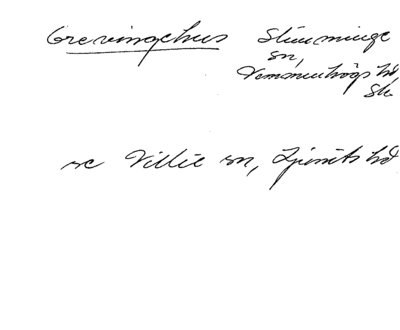 Grevingehus Slimminge
sn,
Vemmenhögs hd
Sk
se Villie sn, Ljunits hd